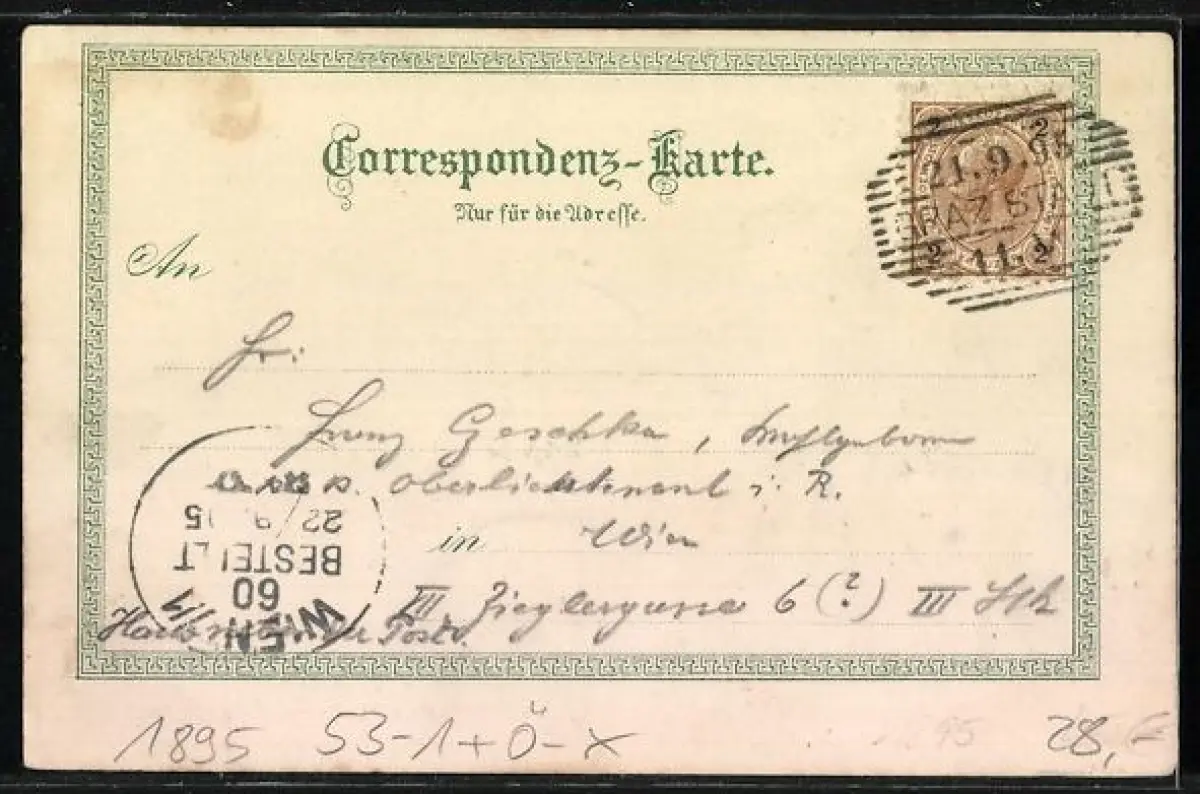 Correspondenz-Karte.
Nur für die Adresse.
2 2
21.9.95
GRAZ STADT
11.V
2 2
An
Hr:
Franz Geschka, Hochwohlgeboren
k. u. k. Oberlieutenant i. R.
in Wien
III Zieglergasse 6 (?) III Stk
Post.
WIEN
60
BESTELLT
22/9 95
1895 53-1+Ö-X 95 28,-€